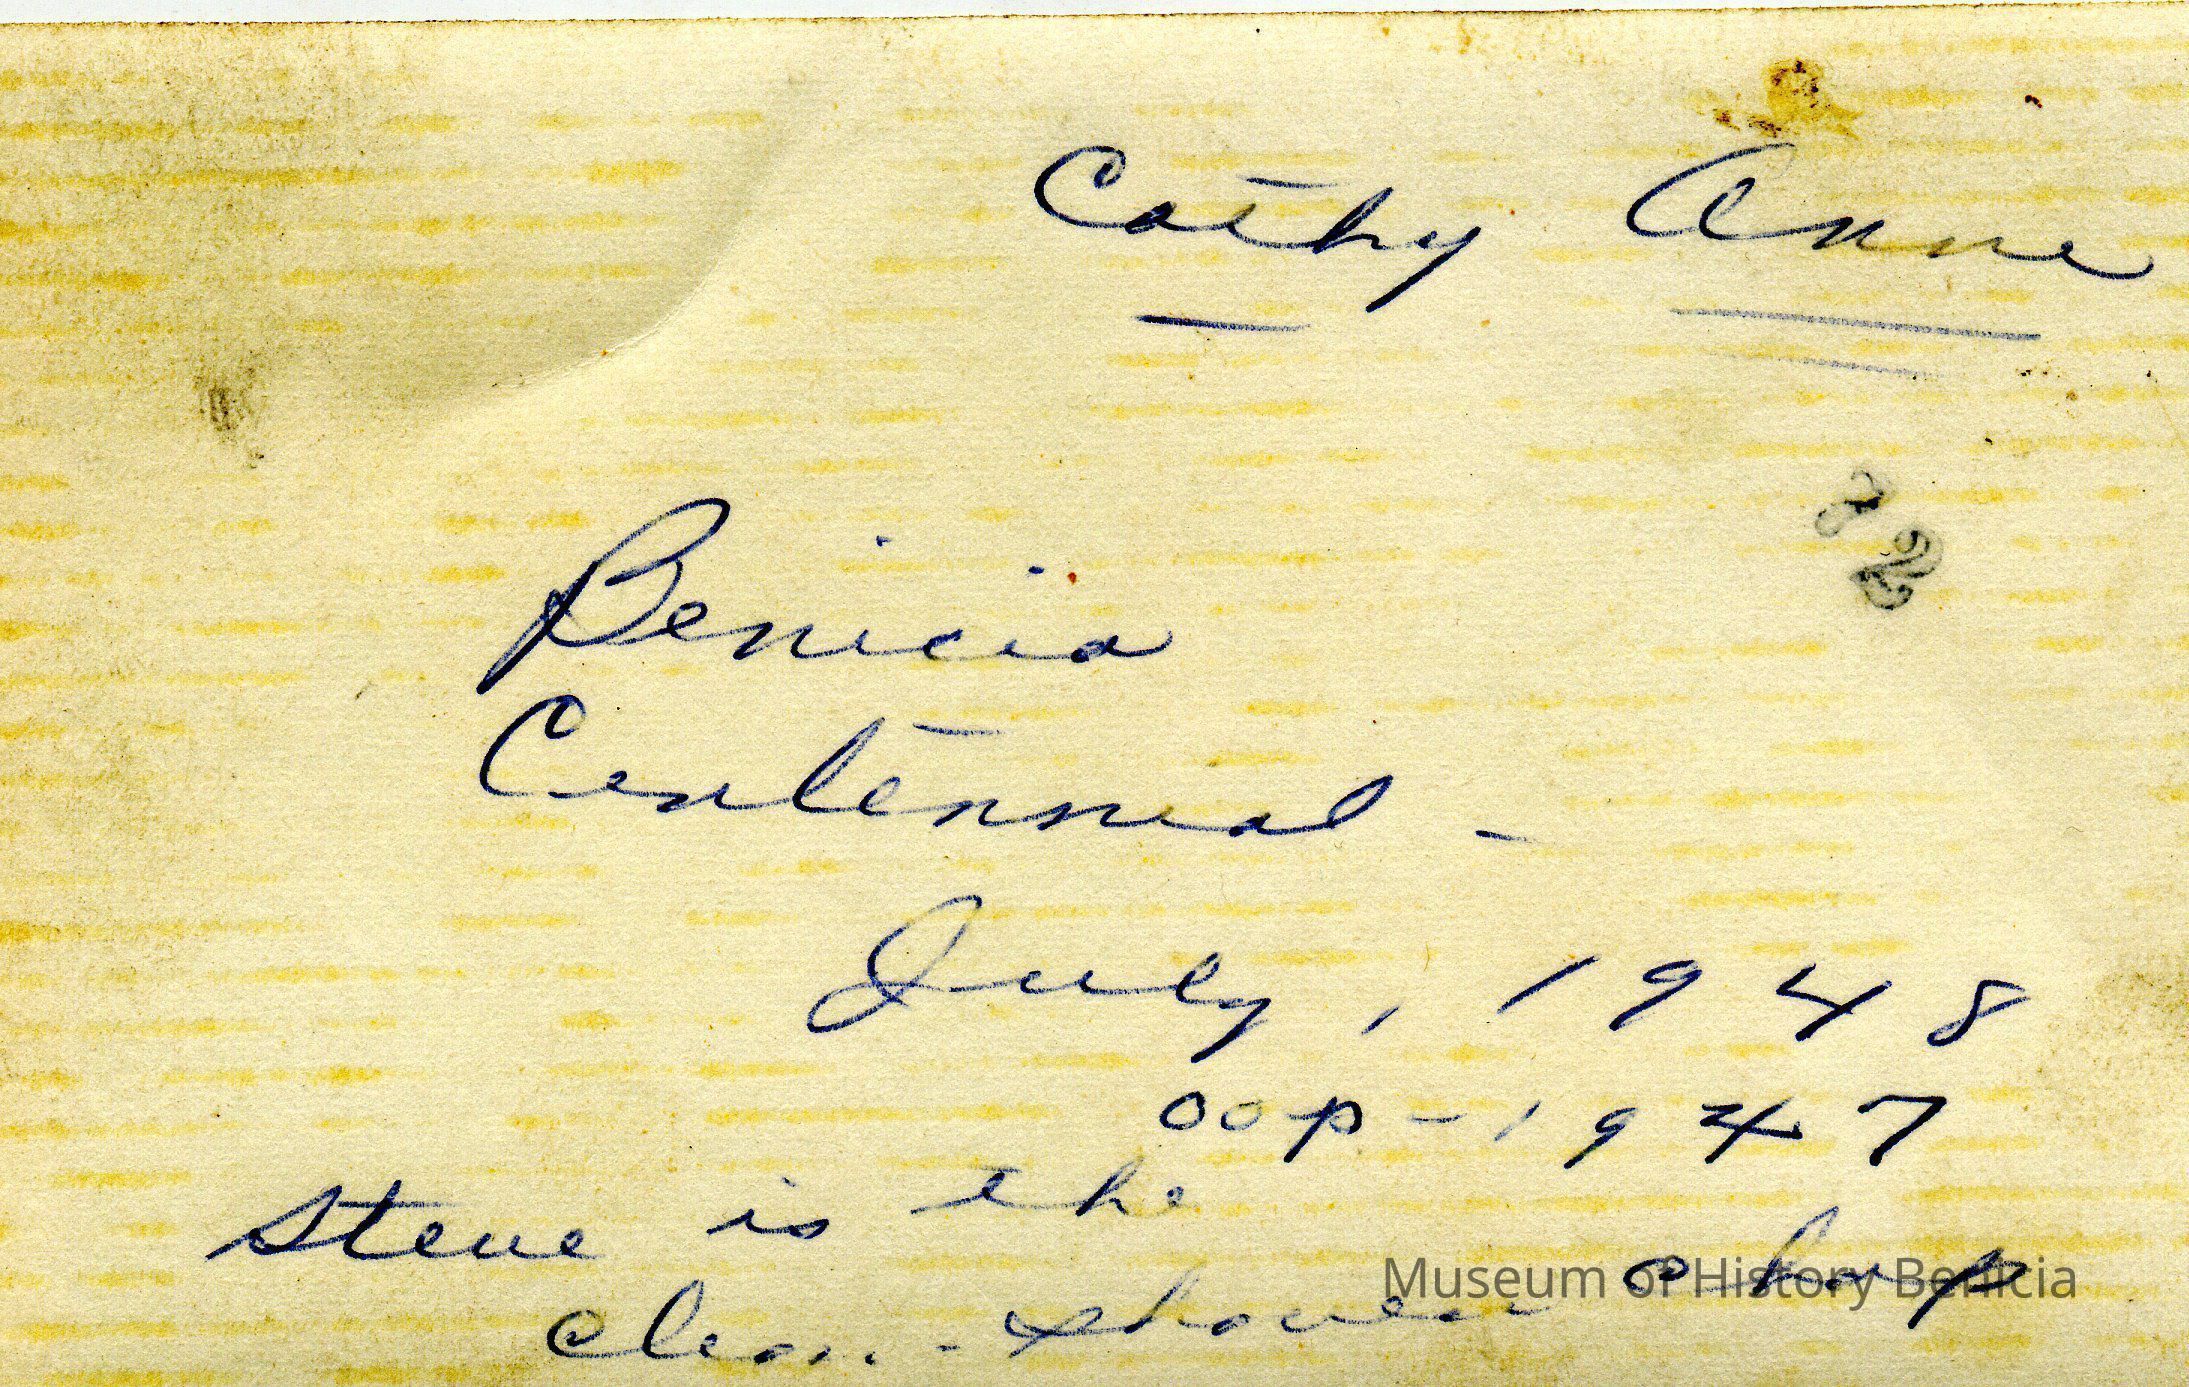 Cathy Anne
72
Benicia
Centennial -
July, 1948
oop - 1947
Steve is the
clean-shaven chap
Museum of History Benicia